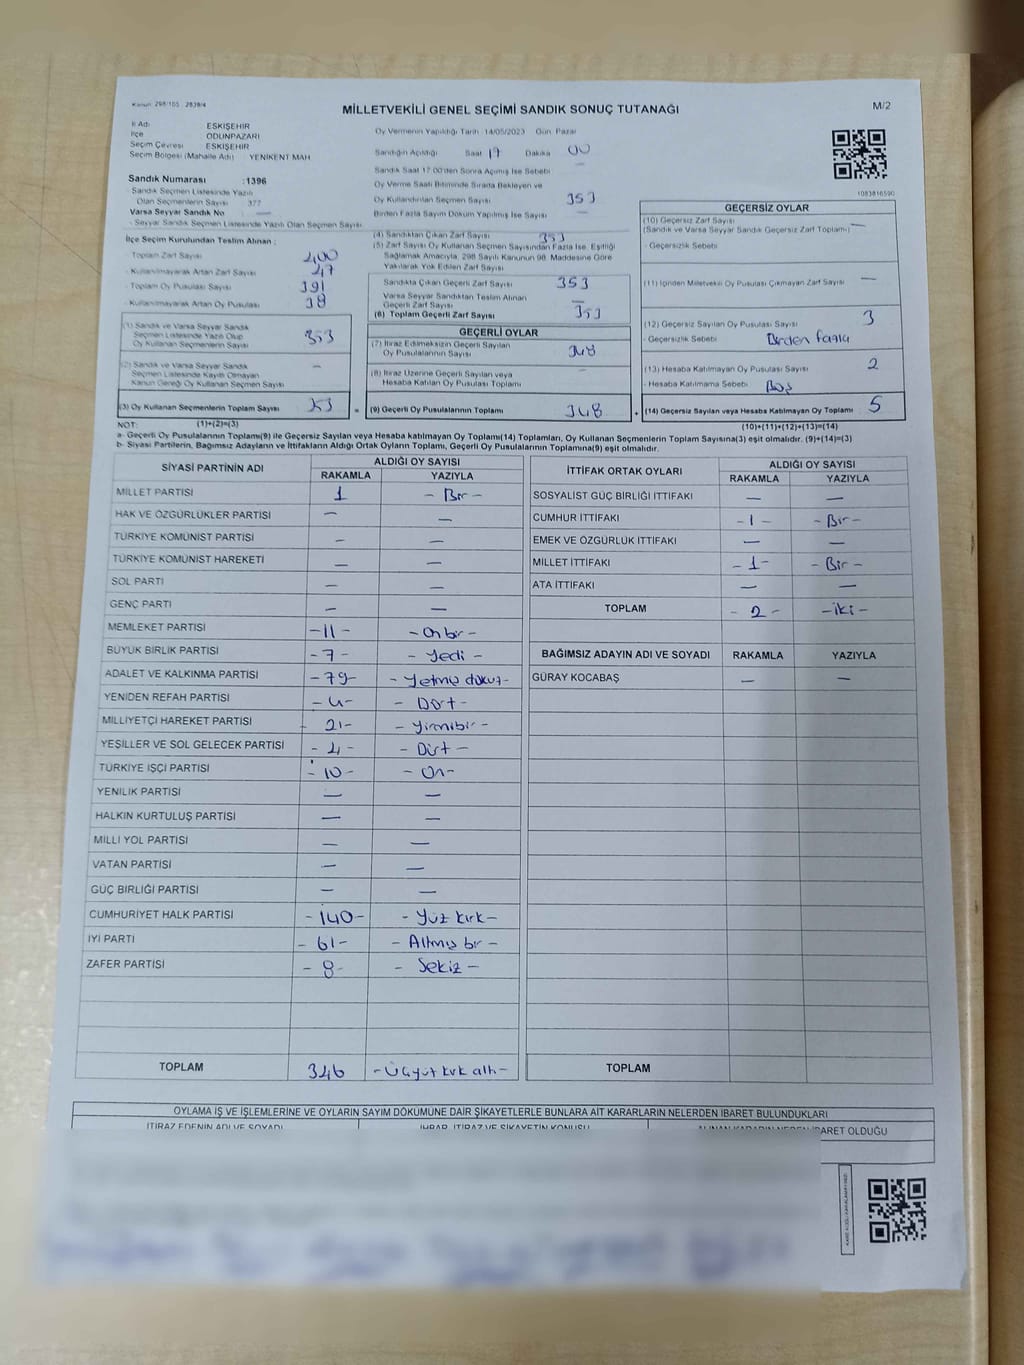 Kanun 298/105 2839/4
MİLLETVEKİLİ GENEL SEÇİMİ SANDIK SONUÇ TUTANAĞI
M/2
İl Adı ESKİŞEHİR
İlçe ODUNPAZARI
Seçim Çevresi ESKİŞEHİR
Seçim Bölgesi (Mahalle Adı) YENİKENT MAH
Sandık Numarası :1396
Sandık Seçmen Listesinde Yazılı
Olan Seçmenlerin Sayısı 377
Varsa Seyyar Sandık No —
- Seyyar Sandık Seçmen Listesinde Yazılı Olan Seçmen Sayısı
İlçe Seçim Kurulundan Teslim Alınan :
- Toplam Zarf Sayısı 400
- Kullanılmayarak Artan Zarf Sayısı 47
- Toplam Oy Pusulası Sayısı 391
- Kullanılmayarak Artan Oy Pusulası 38
(1) Sandık ve Varsa Seyyar Sandık
Seçmen Listesinde Yazılı Olup
Oy Kullanan Seçmenlerin Sayısı 353
(2) Sandık ve Varsa Seyyar Sandık
Seçmen Listesinde Kayıtlı Olmayan
Kanun Gereği Oy Kullanan Seçmen Sayısı —
(3) Oy Kullanan Seçmenlerin Toplam Sayısı 353
Oy Vermenin Yapıldığı Tarih 14/05/2023 Gün Pazar
Sandığın Açıldığı Saat 17 Dakika 00
Sandık Saat 17:00'den Sonra Açılmış İse Sebebi —
Oy Verme Saati Bitiminde Sırada Bekleyen ve
Oy Kullandırılan Seçmen Sayısı 353
Birden Fazla Sayım Döküm Yapılmış İse Sayısı —
(4) Sandıktan Çıkan Zarf Sayısı 353
(5) Zarf Sayısı Oy Kullanan Seçmen Sayısından Fazla İse, Eşitliği
Sağlamak Amacıyla, 298 Sayılı Kanunun 98. Maddesine Göre
Yakılarak Yok Edilen Zarf Sayısı
Sandıkta Çıkan Geçerli Zarf Sayısı 353
Varsa Seyyar Sandıktan Teslim Alınan
Geçerli Zarf Sayısı —
(6) Toplam Geçerli Zarf Sayısı 353
GEÇERLİ OYLAR
(7) İtiraz Edilmeksizin Geçerli Sayılan
Oy Pusulalarının Sayısı 348
(8) İtiraz Üzerine Geçerli Sayılan veya
Hesaba Katılan Oy Pusulası Toplamı —
= (9) Geçerli Oy Pusulalarının Toplamı 348
1083816590
GEÇERSİZ OYLAR
(10) Geçersiz Zarf Sayısı
(Sandık ve Varsa Seyyar Sandık Geçersiz Zarf Toplamı) —
- Geçersizlik Sebebi
(11) İçinden Milletvekili Oy Pusulası Çıkmayan Zarf Sayısı —
(12) Geçersiz Sayılan Oy Pusulası Sayısı 3
- Geçersizlik Sebebi Birden fazla
(13) Hesaba Katılmayan Oy Pusulası Sayısı 2
- Hesaba Katılmama Sebebi Boş
+ (14) Geçersiz Sayılan veya Hesaba Katılmayan Oy Toplamı 5
NOT: (1)+(2)=(3) (10)+(11)+(12)+(13)=(14)
a- Geçerli Oy Pusulalarının Toplamı(9) ile Geçersiz Sayılan veya Hesaba katılmayan Oy Toplamı(14) Toplamları, Oy Kullanan Seçmenlerin Toplam Sayısına(3) eşit olmalıdır. (9)+(14)=(3)
b- Siyasi Partilerin, Bağımsız Adayların ve İttifakların Aldığı Ortak Oyların Toplamı, Geçerli Oy Pusulalarının Toplamına(9) eşit olmalıdır.
SİYASİ PARTİNİN ADI ALDIĞI OY SAYISI
RAKAMLA YAZIYLA
MİLLET PARTİSİ 1 - Bir -
HAK VE ÖZGÜRLÜKLER PARTİSİ — —
TÜRKİYE KOMÜNİST PARTİSİ — —
TÜRKİYE KOMÜNİST HAREKETİ — —
SOL PARTİ — —
GENÇ PARTİ — —
MEMLEKET PARTİSİ -11- - On bir -
BÜYÜK BİRLİK PARTİSİ -7- - Yedi -
ADALET VE KALKINMA PARTİSİ -79- - Yetmiş dokuz -
YENİDEN REFAH PARTİSİ -4- - Dört -
MİLLİYETÇİ HAREKET PARTİSİ - 21- - Yirmibir -
YEŞİLLER VE SOL GELECEK PARTİSİ - 4- - Dört -
TÜRKİYE İŞÇİ PARTİSİ - 10- - On -
YENİLİK PARTİSİ — —
HALKIN KURTULUŞ PARTİSİ — —
MİLLİ YOL PARTİSİ — —
VATAN PARTİSİ — —
GÜÇ BİRLİĞİ PARTİSİ — —
CUMHURİYET HALK PARTİSİ -140- - Yüz kırk -
İYİ PARTİ - 61- - Altmış bir -
ZAFER PARTİSİ - 8- - Sekiz -
TOPLAM 346 - Üçyüz kırk altı -
İTTİFAK ORTAK OYLARI ALDIĞI OY SAYISI
RAKAMLA YAZIYLA
SOSYALİST GÜÇ BİRLİĞİ İTTİFAKI — —
CUMHUR İTTİFAKI -1- - Bir -
EMEK VE ÖZGÜRLÜK İTTİFAKI — —
MİLLET İTTİFAKI -1- - Bir -
ATA İTTİFAKI — —
TOPLAM - 2- - iki -
BAĞIMSIZ ADAYIN ADI VE SOYADI RAKAMLA YAZIYLA
GÜRAY KOCABAŞ — —
TOPLAM
OYLAMA İŞ VE İŞLEMLERİNE VE OYLARIN SAYIM DÖKÜMÜNE DAİR ŞİKAYETLERLE BUNLARA AİT KARARLARIN NELERDEN İBARET BULUNDUKLARI
İTİRAZ EDENİN ADI VE SOYADI İHBAR, İTİRAZ VE ŞİKAYETİN KONUSU ALINAN KARARIN NEDEN İBARET OLDUĞU